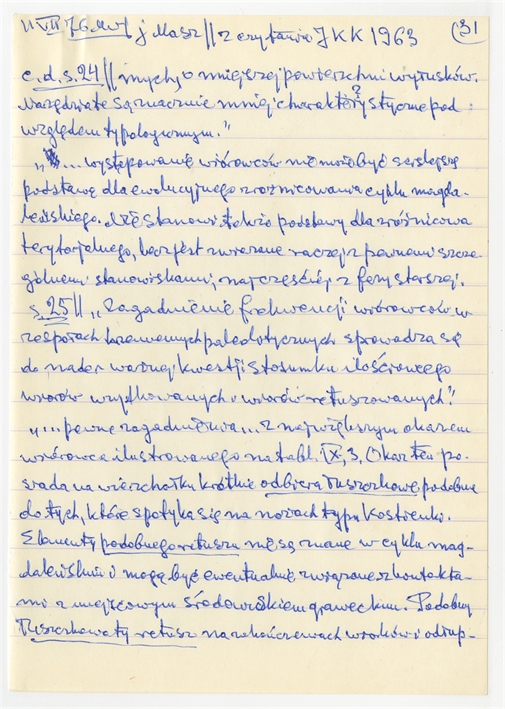 j Masz || z czytania J K K 1963 31
c.d. s. 24 || mych, o mniejszej powierzchni wyłusków.
narzędzia te są znacznie mniej charakterystyczne pod ?
względem typologicznym."
"... występowanie wiórowców nie może być ściślejszą
podstawą dla ewolucyjnego zróżnicowania cyklu magda-
leńskiego. Nie stanowi także podstawy dla zróżnicowa
terytorjalnego, lecz jest związane raczej z pewnemi szcze-
gólnemi stanowiskami, najczęściej z fazy starszej.
s. 25 || "Zagadnienie frekwencji wiórowców w
zespołach krzemiennych paleolitycznych sprowadza się
do nader ważnej kwestji stosunku ilościowego
wiórów użytkowanych i wiórów retuszowanych."
"... pewne zagadnienia ... z największym okazem
wiórowca ilustrowanego na tabl. IX, 3. Okaz ten po-
siada na wierzchołku krótkie odbicia łuszczkowe podobne
do tych, które spotyka się na nożach typu Kostienki.
Elementy podobnego retuszu nie są znane w cyklu mag-
daleńskim i mogą być ewentualnie związane z kontakta-
mi z miejscowym środowiskiem graweckim. Podobny
łuszczkowaty retusz na zakończeniach wiórków i odłup-